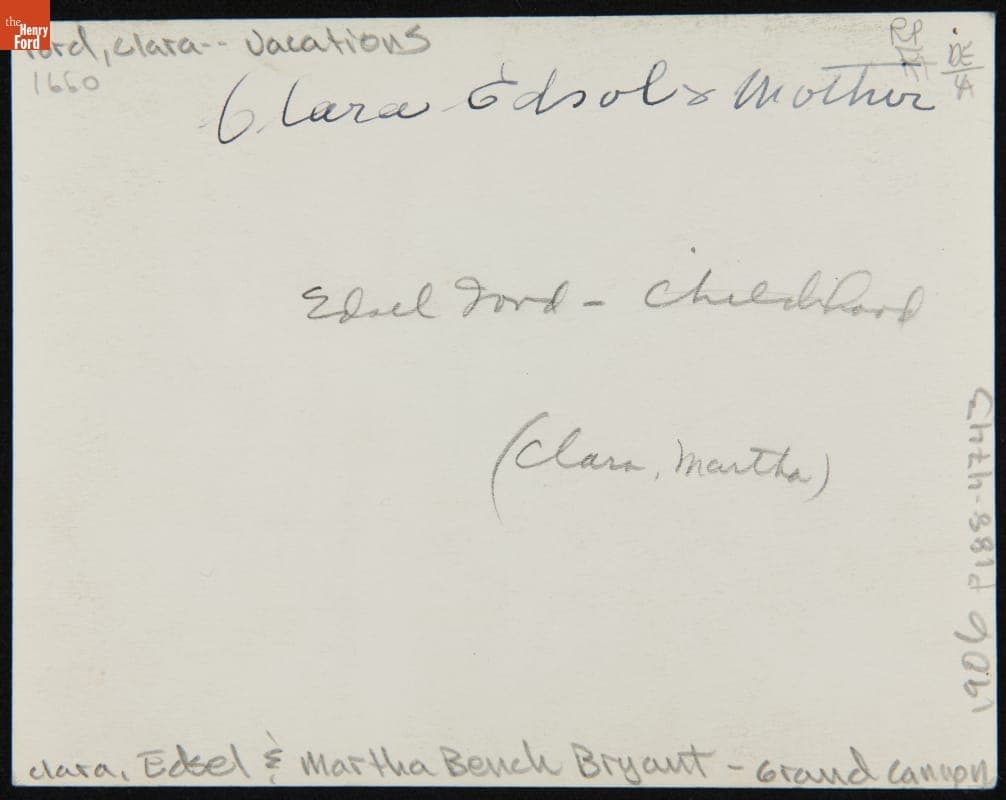 the
Henry
Ford
Ford, Clara -- Vacations
1660
RP
DE
A
Clara Edsol & Mother
Edsel Ford - Childhood
(Clara, Martha)
1906 P188-4743
Clara, Edsel & Martha Bench Bryant - Grand Canyon